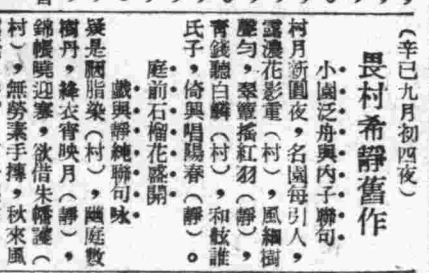 （辛巳九月初四夜）
畏村希靜舊作
小園泛舟與內子聯句
村月漸圓夜，名園每引人，
露濃花影重（村），風細樹
聲勻，翠蓋搖紅羽（靜），
青錢聽白鱗（村），和舷誰
氏子，倚興唱陽春（靜）。
庭前石榴花盛開
戲與靜純聯句咏
疑是胭脂染（村），幽庭數
樹丹，絳衣宵映月（靜），
錦帳曉迎寒，欲借朱幡護（
村），無勞素手摶，秋來風